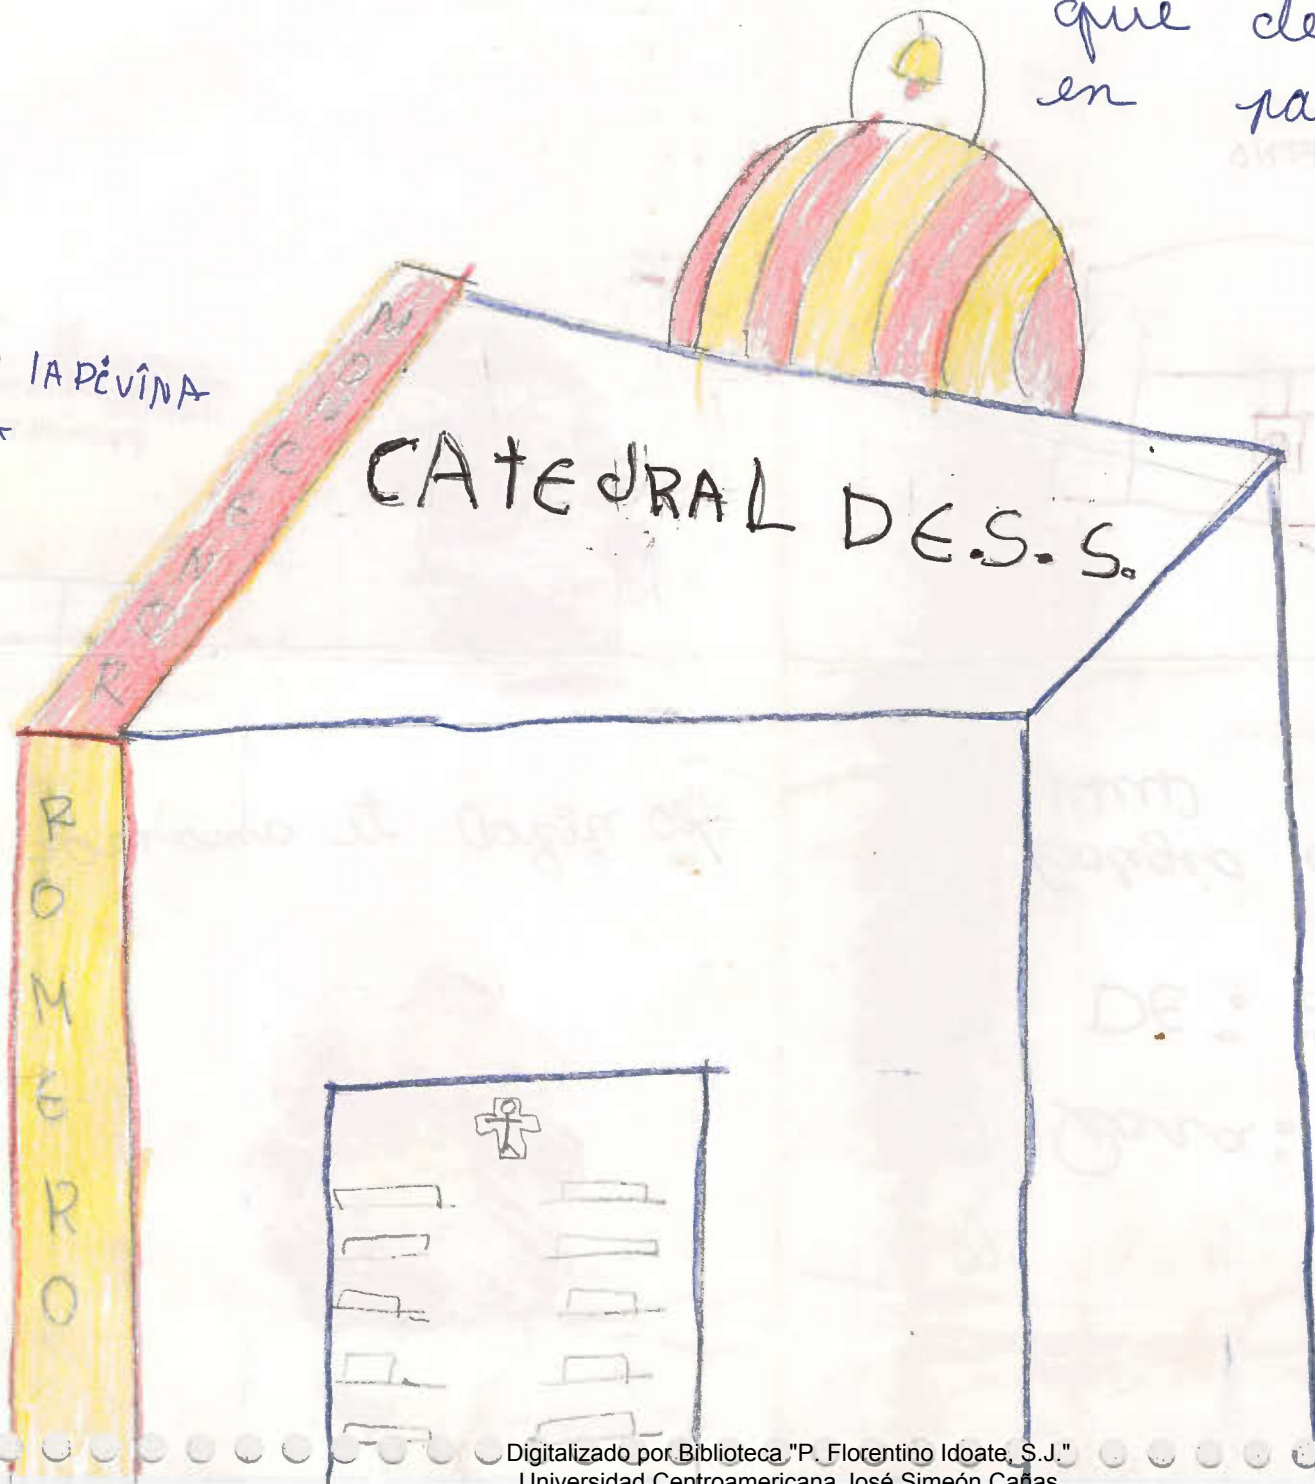 que de
en pa
lA DivINA
MONCENOR
CATEDRAL DE.S.S.
ROMERO
Digitalizado por Biblioteca "P. Florentino Idoate, S.J."
Universidad Centroamericana José Simeón Cañas